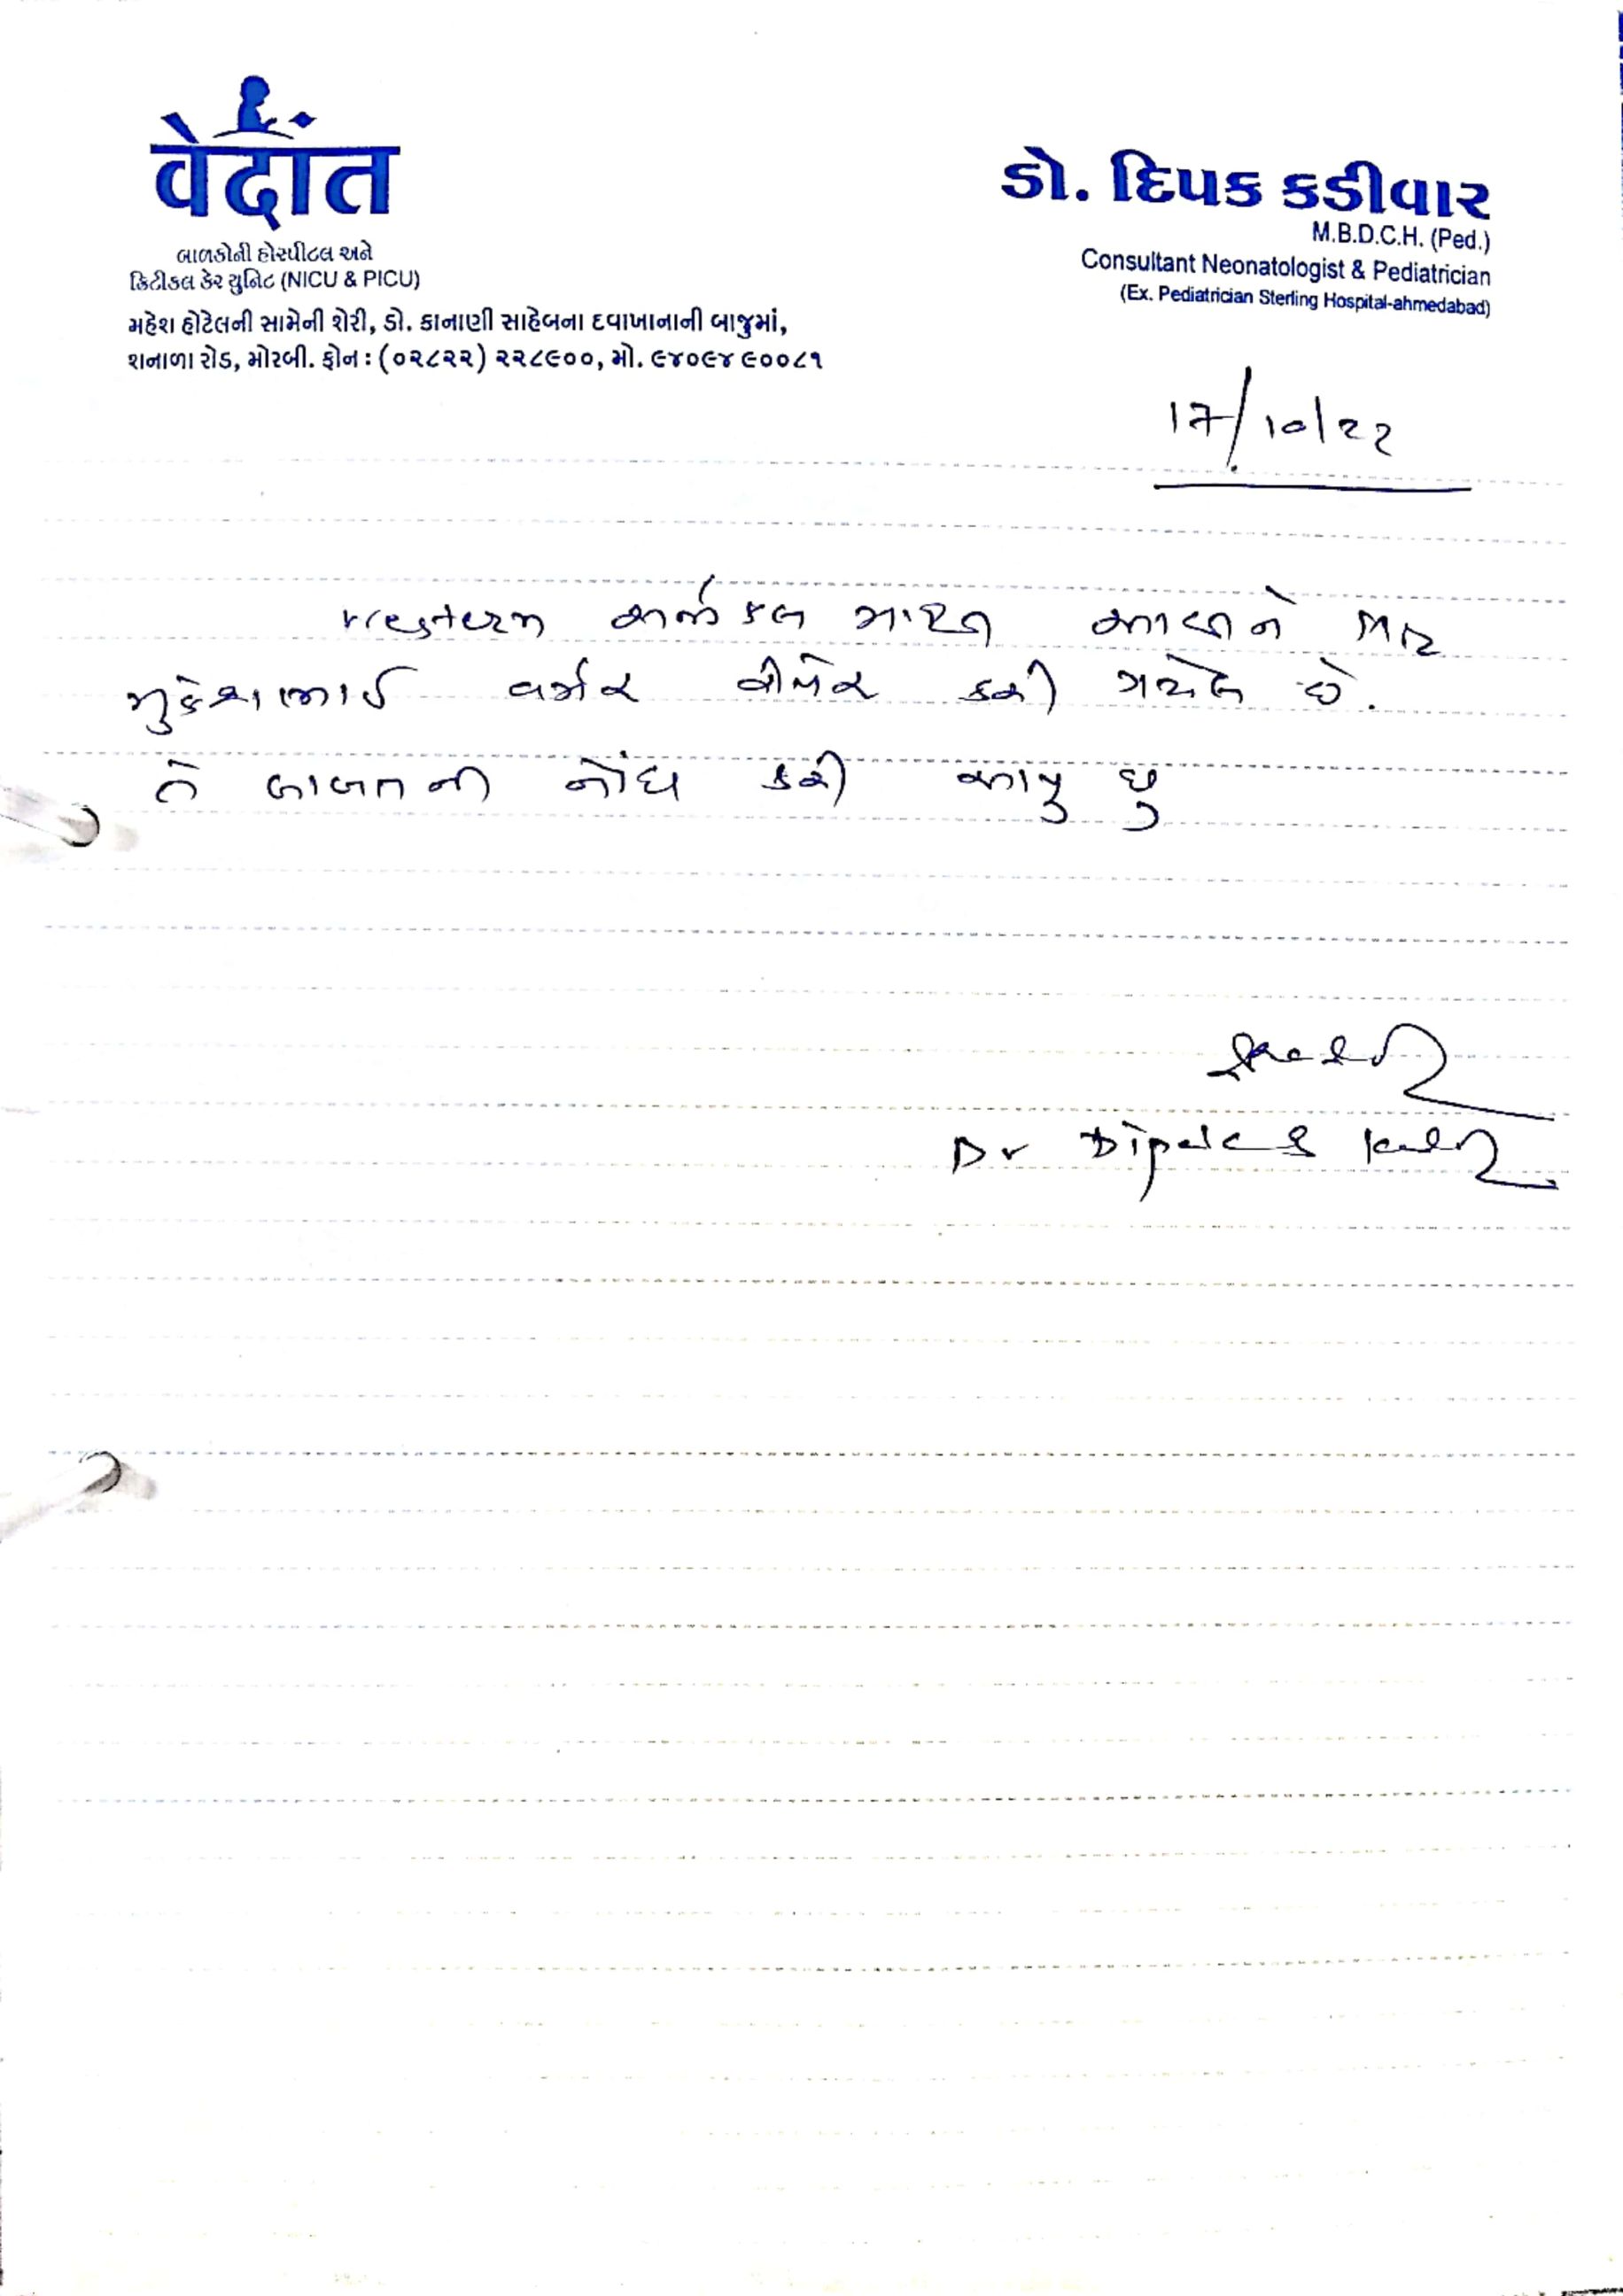 વેદાંત
બાળકોની હોસ્પીટલ અને
ક્રિટીકલ કેર યુનિટ (NICU & PICU)
મહેશ હોટેલની સામેની શેરી, ડો. કાનાણી સાહેબના દવાખાનાની બાજુમાં,
શનાળા રોડ, મોરબી. ફોન : (૦૨૮૨૨) ૨૨૮૯૦૦, મો. ૯૪૦૯૪ ૯૦૦૮૧
ડો. દિપક કડીવાર
M.B.D.C.H. (Ped.)
Consultant Neonatologist & Pediatrician
(Ex. Pediatrician Sterling Hospital-ahmedabad)
17/10/22
Western
મુકેશભાઈ કરી ગયેલ છે.
તે બાબતની નોંધ કરી આપુ છુ
Dr Dipak